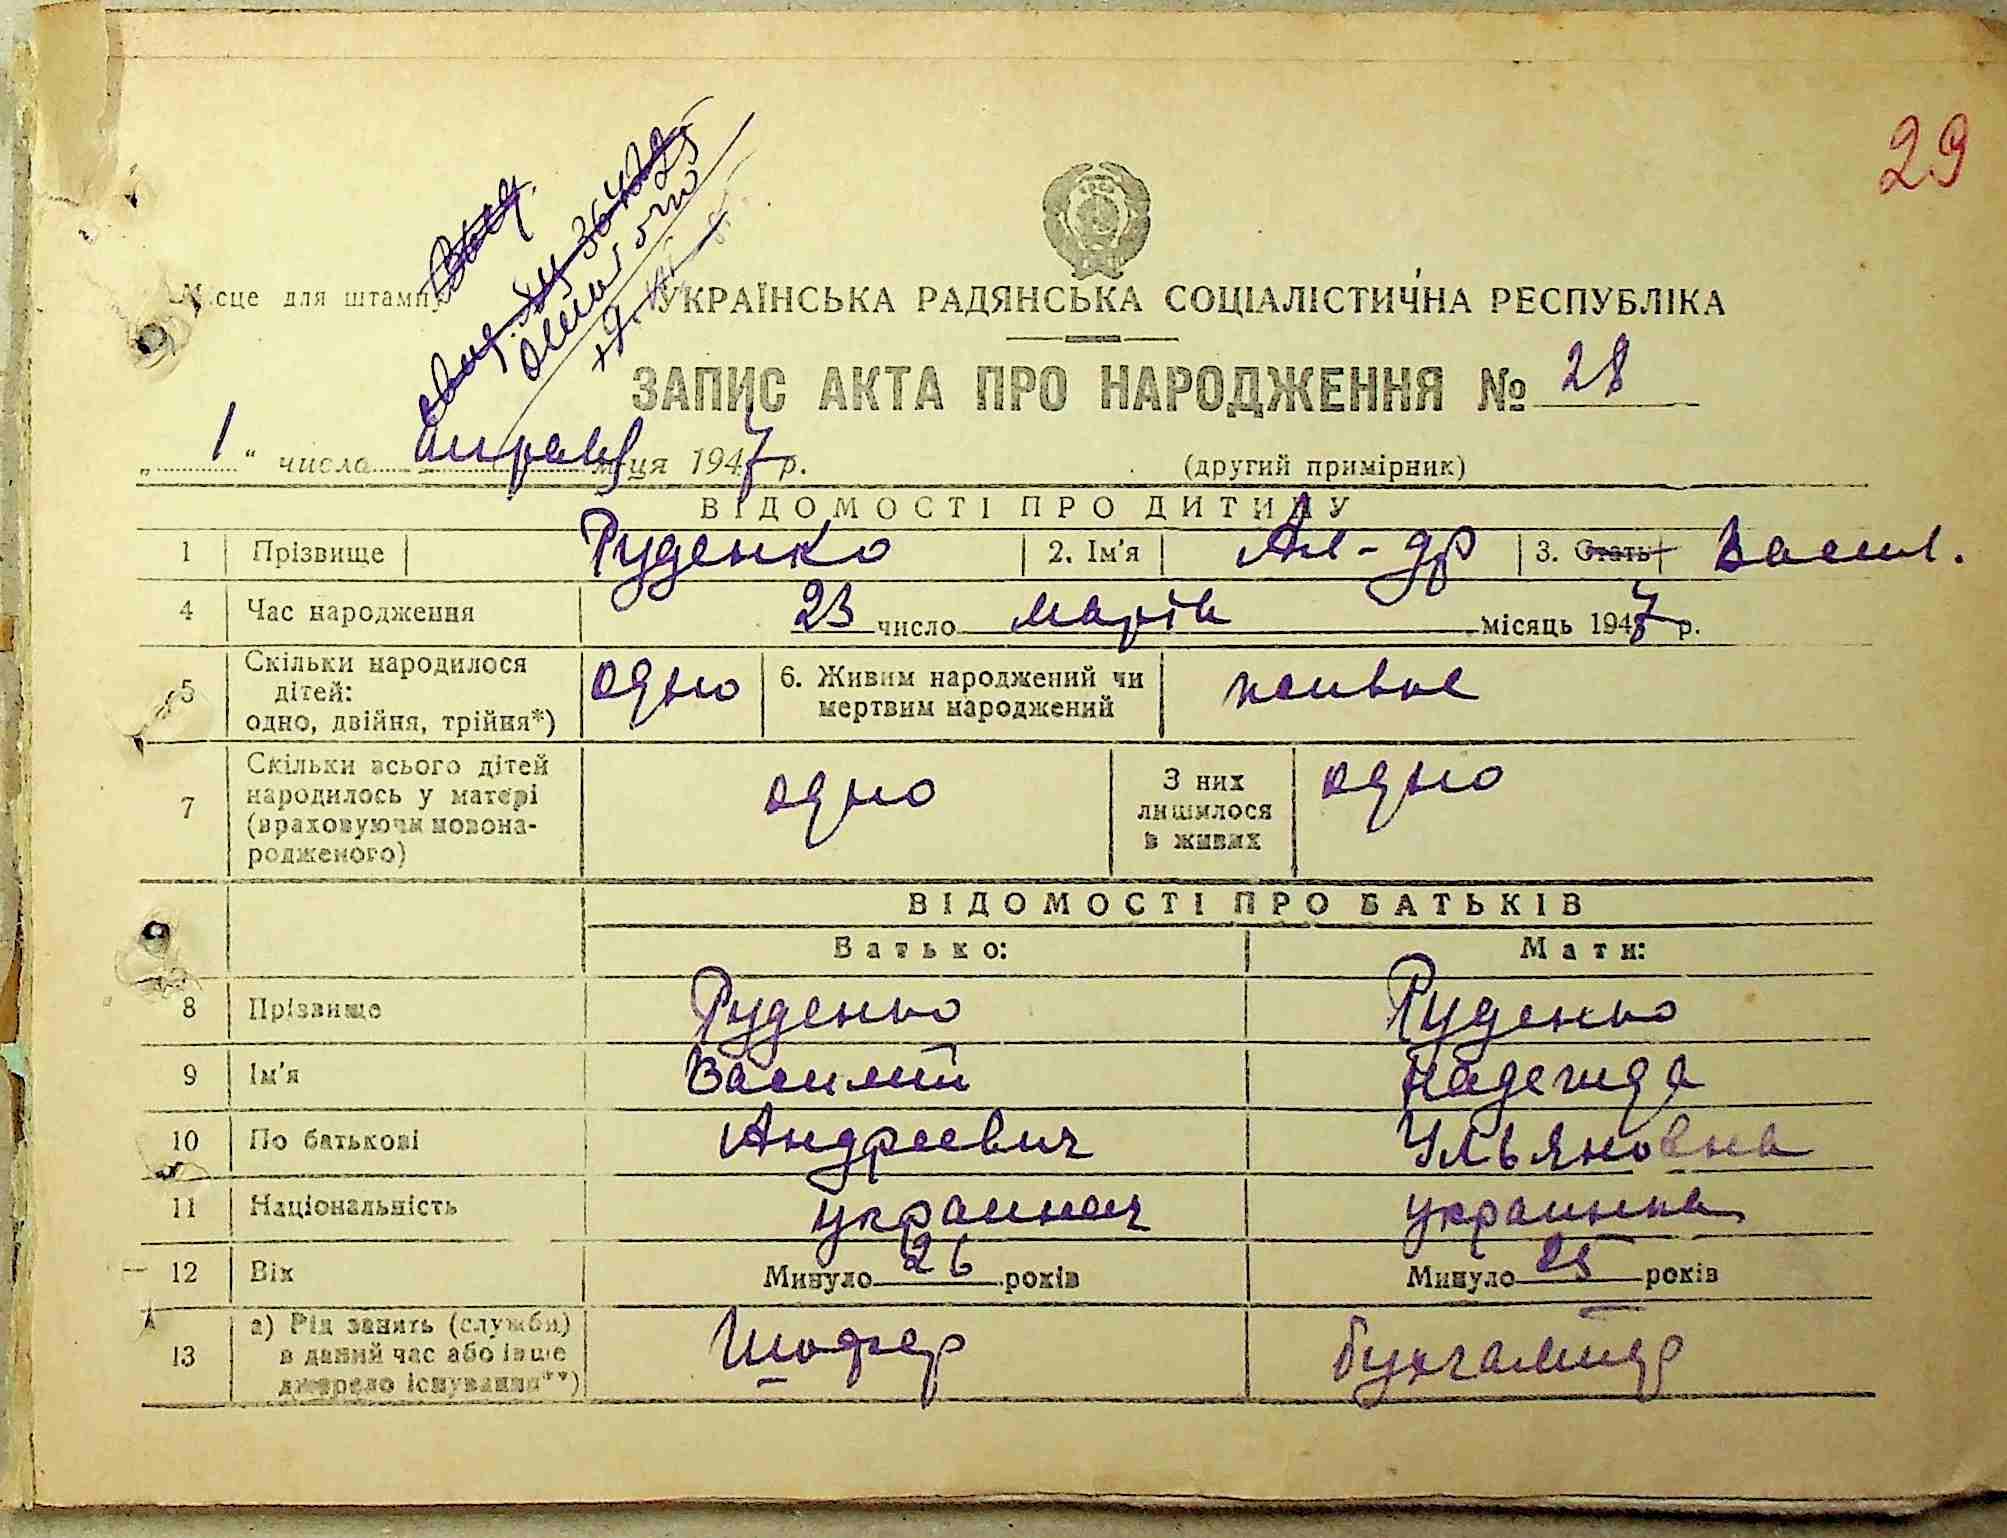 29
Місце для штампу
УКРАЇНСЬКА РАДЯНСЬКА СОЦІАЛІСТИЧНА РЕСПУБЛІКА
ЗАПИС АКТА ПРО НАРОДЖЕННЯ № 28
„ 1 “ числа апреля м-ця 1947 р.
(другий примірник)
ВІДОМОСТІ ПРО ДИТИНУ
1 Прізвище Руденко 2. Ім'я Ал-др 3. Стать Васил.
4 Час народження 23 число марта місяць 1947 р.
5 Скільки народилося дітей: одно, двійня, трійня*) одно 6. Живим народжений чи мертвим народжений живые
7 Скільки всього дітей народилось у матері (враховуючи новонародженого) одно З них лишилося в живих одно
ВІДОМОСТІ ПРО БАТЬКІВ
Батько: Мати:
8 Прізвище Руденко Руденко
9 Ім'я Василий Надежда
10 По батькові Андреевич Ульяновна
11 Національність украинец украинка
12 Вік Минуло 26 років Минуло 25 років
13 а) Рід занять (служби) в даний час або інше джерело існування**) Шофер бухгалтер